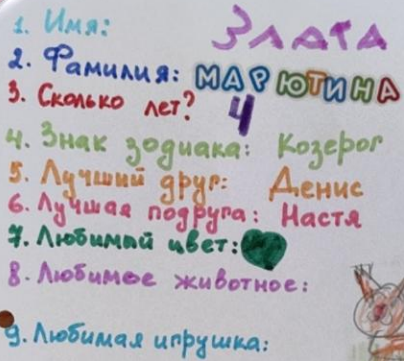 1. Имя: Злата
2. Фамилия: МАРЮТИНА
3. Сколько лет? 4
4. Знак зодиака: Козерог
5. Лучший друг: Денис
6. Лучшая подруга: Настя
7. Любимый цвет:
8. Любимое животное:
9. Любимая игрушка: